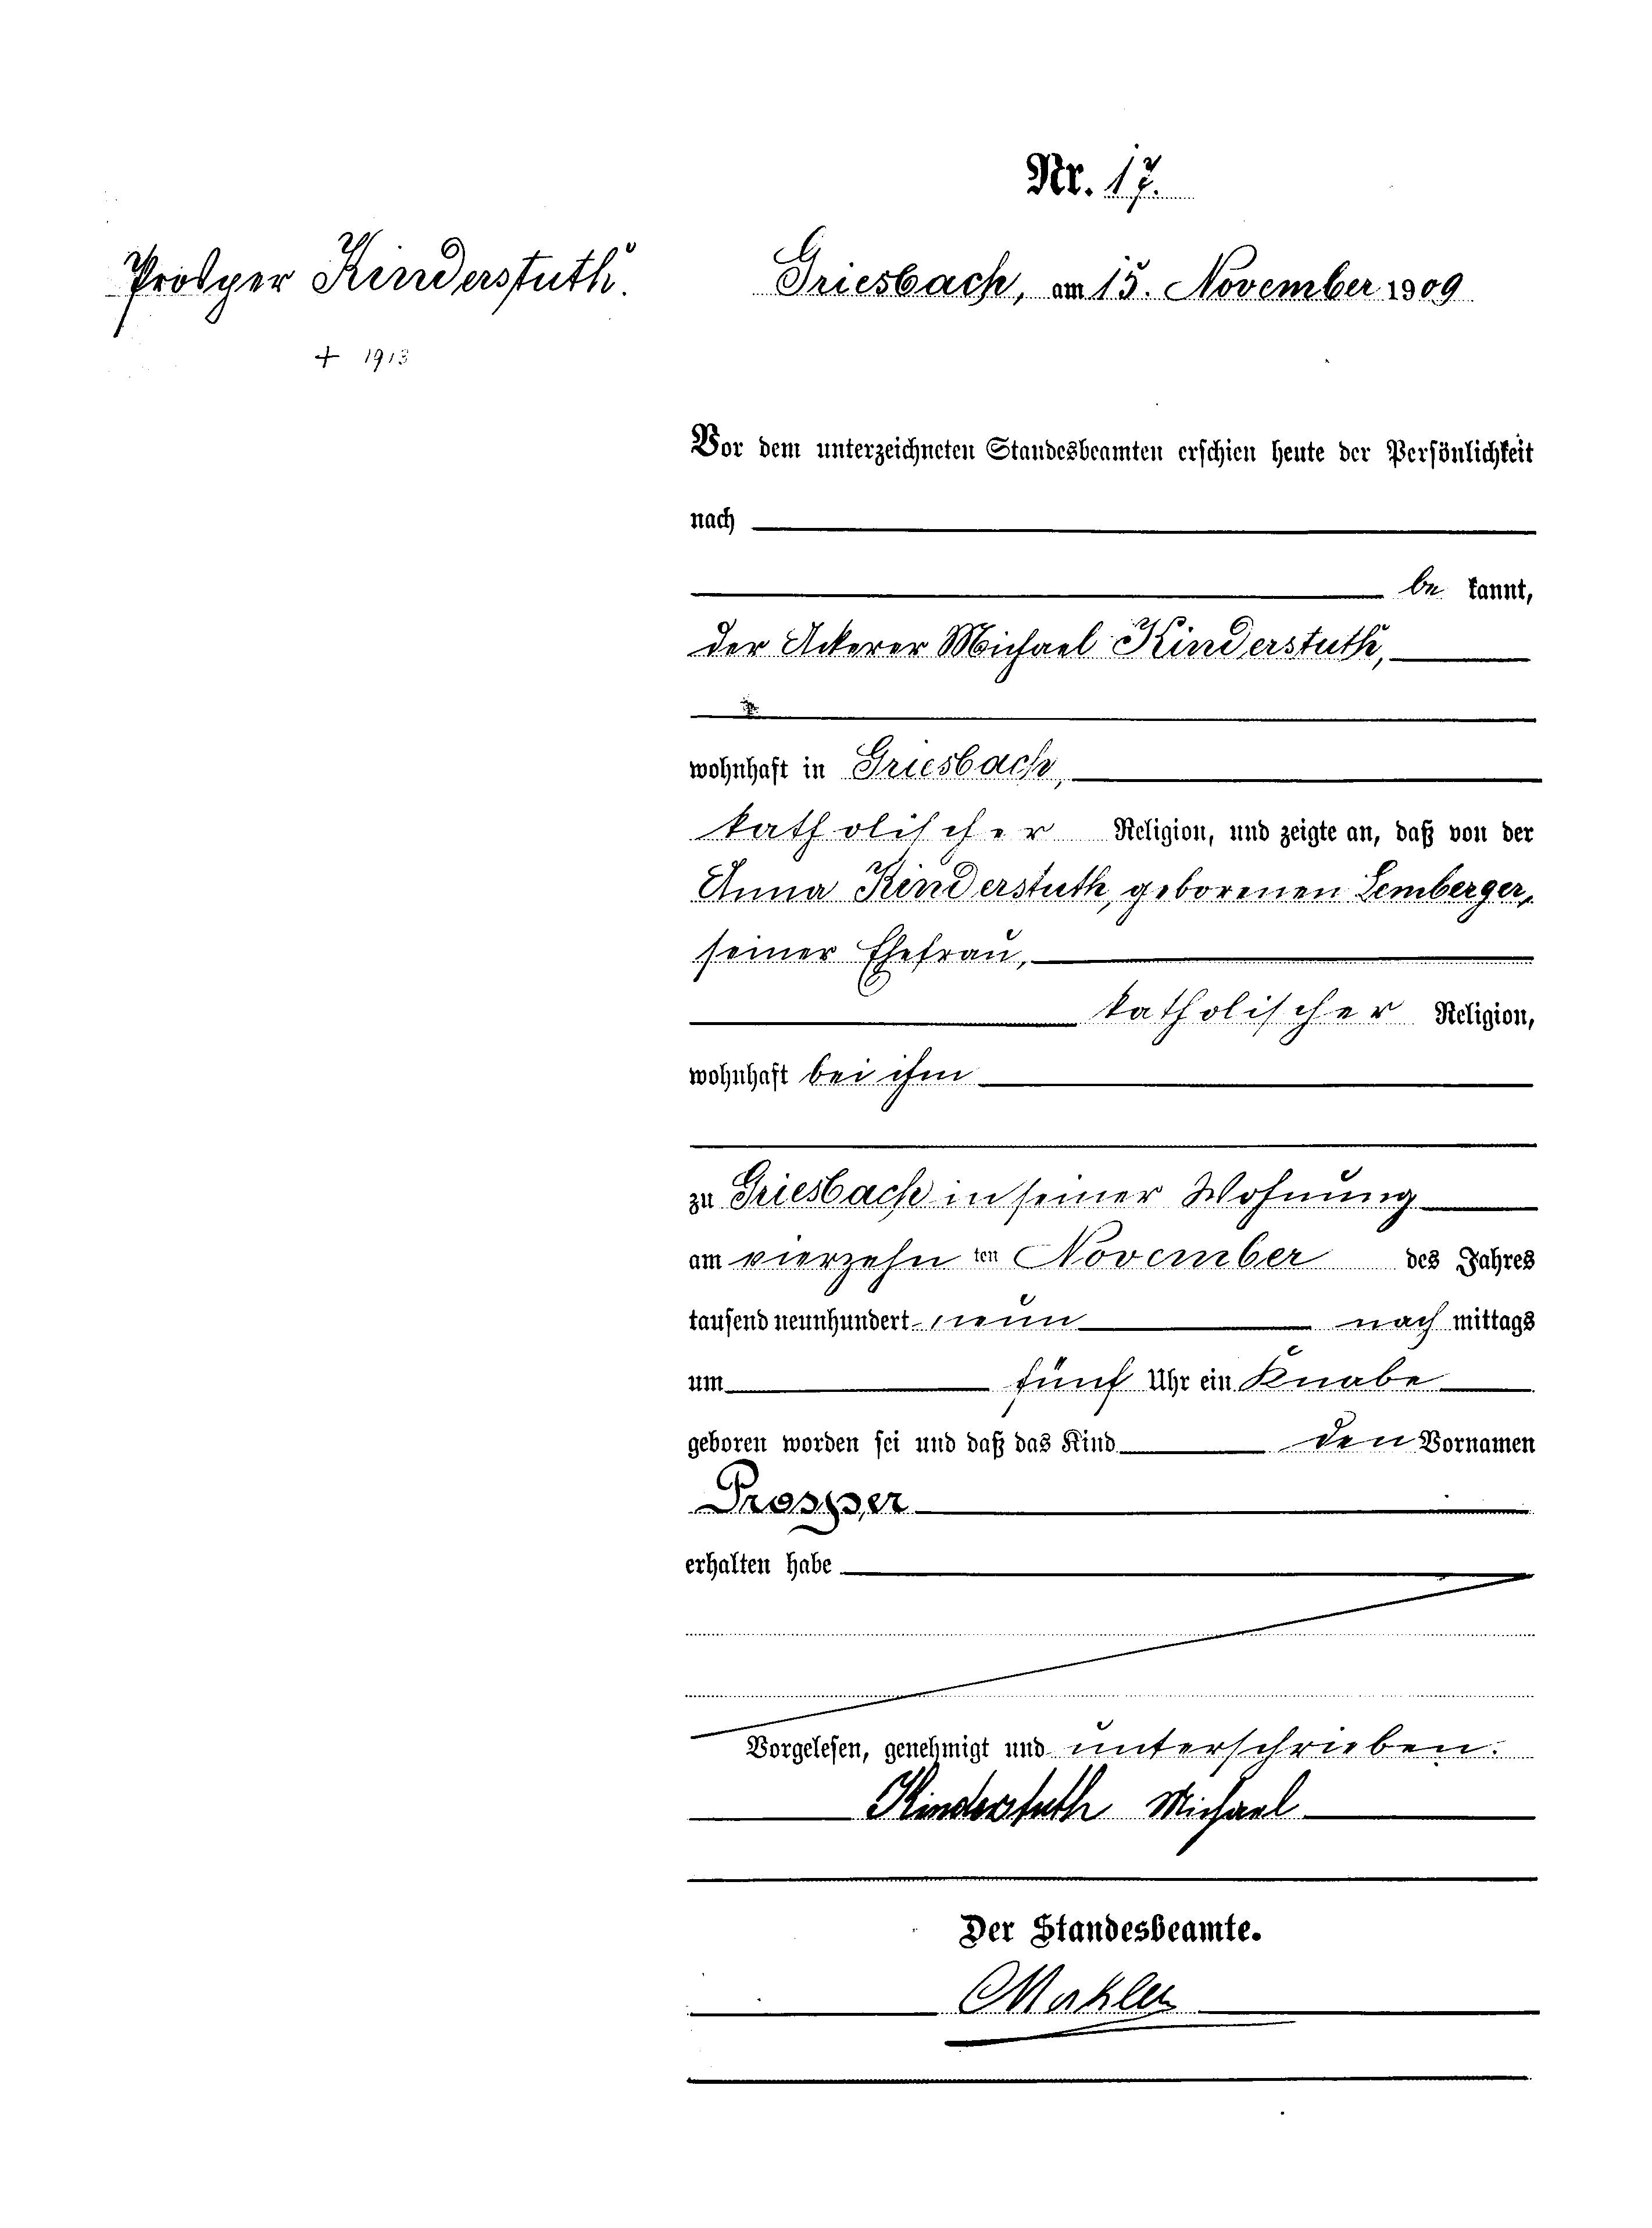 Nr. 17.
Prosper Kinderstuth.
Griesbach, am 15. November 1909
+ 1913
Vor dem unterzeichneten Standesbeamten erschien heute der Persönlichkeit
nach
be kannt,
der Ackerer Michael Kinderstuth,
wohnhaft in Griesbach,
katholischer Religion, und zeigte an, daß von der
Anna Kinderstuth, geborenen Lemberger,
seiner Ehefrau,
katholischer Religion,
wohnhaft bei ihm
zu Griesbach in seiner Wohnung
am vierzehn ten November des Jahres
tausend neunhundert neun nach mittags
um fünf Uhr ein Knabe
geboren worden sei und daß das Kind den Vornamen
Prosper
erhalten habe
Vorgelesen, genehmigt und unterschrieben.
Kinderstuth Michael
Der Standesbeamte.